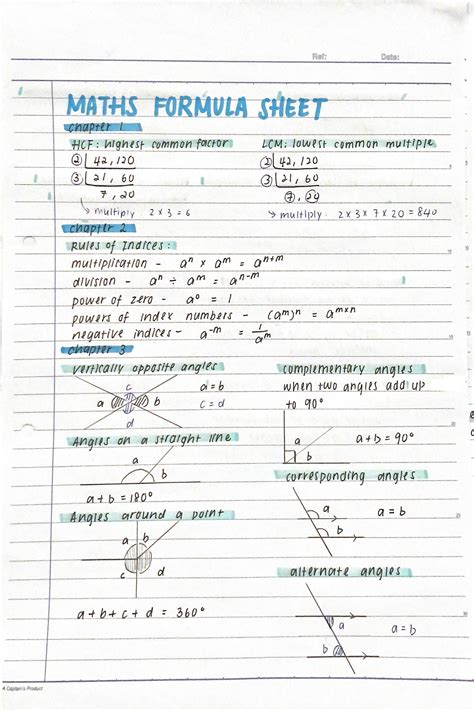 Ref: Date:
MATHS FORMULA SHEET
chapter 1
HCF: highest common factor
② 42, 120
③ 21, 60
7, 20
↳ multiply: 2 x 3 = 6
LCM: lowest common multiple
② 42, 120
③ 21, 60
⑦, ⑳
↳ multiply: 2 x 3 x 7 x 20 = 840
chapter 2
Rules of Indices:
multiplication - aⁿ x aᵐ = aⁿ⁺ᵐ
division - aⁿ ÷ aᵐ = aⁿ⁻ᵐ
power of zero - a⁰ = 1
powers of index numbers - (aᵐ)ⁿ = aᵐˣⁿ
negative indices - a⁻ᵐ = 1/aᵐ
chapter 3
vertically opposite angles
c
a b
d
a = b
c = d
Angles on a straight line
a
b
a + b = 180°
Angles around a point
a b
c d
a + b + c + d = 360°
complementary angles
when two angles add up
to 90°
a
b
a + b = 90°
corresponding angles
a
b
a = b
alternate angles
a
b
a = b
A Captain's Product